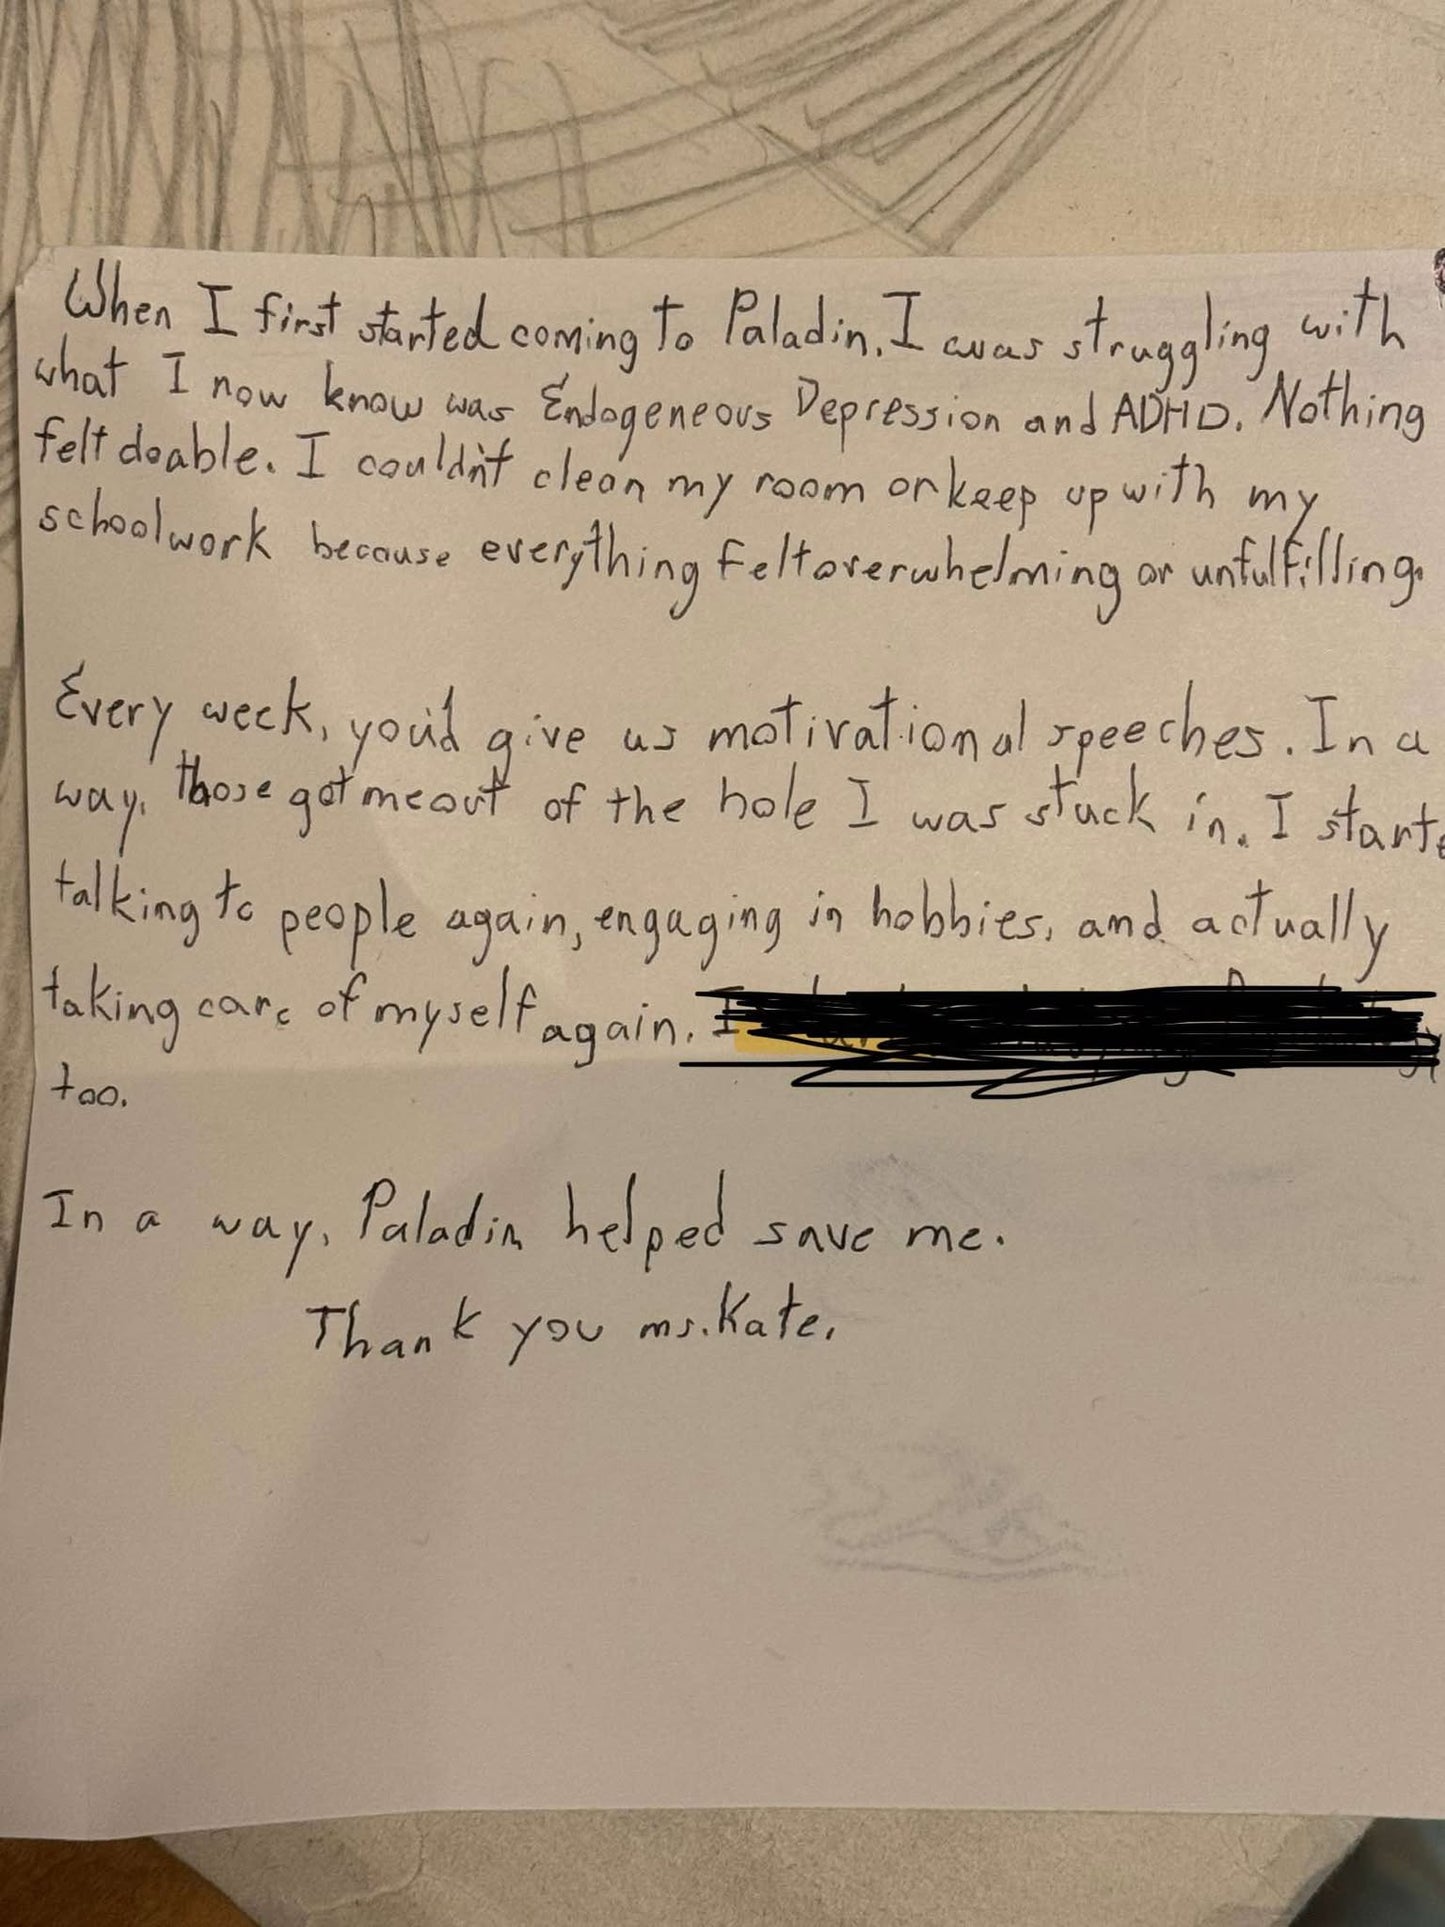 When I first started coming to Paladin, I was struggling with
what I now know was Endogeneous Depression and ADHD. Nothing
felt doable. I couldn't clean my room or keep up with my
schoolwork because everything felt overwhelming or unfulfilling.
Every week, you'd give us motivational speeches. In a
way, those got me out of the hole I was stuck in. I starte
talking to people again, engaging in hobbies, and actually
taking care of myself again. I
too.
In a way, Paladin helped save me.
Thank you ms. Kate.